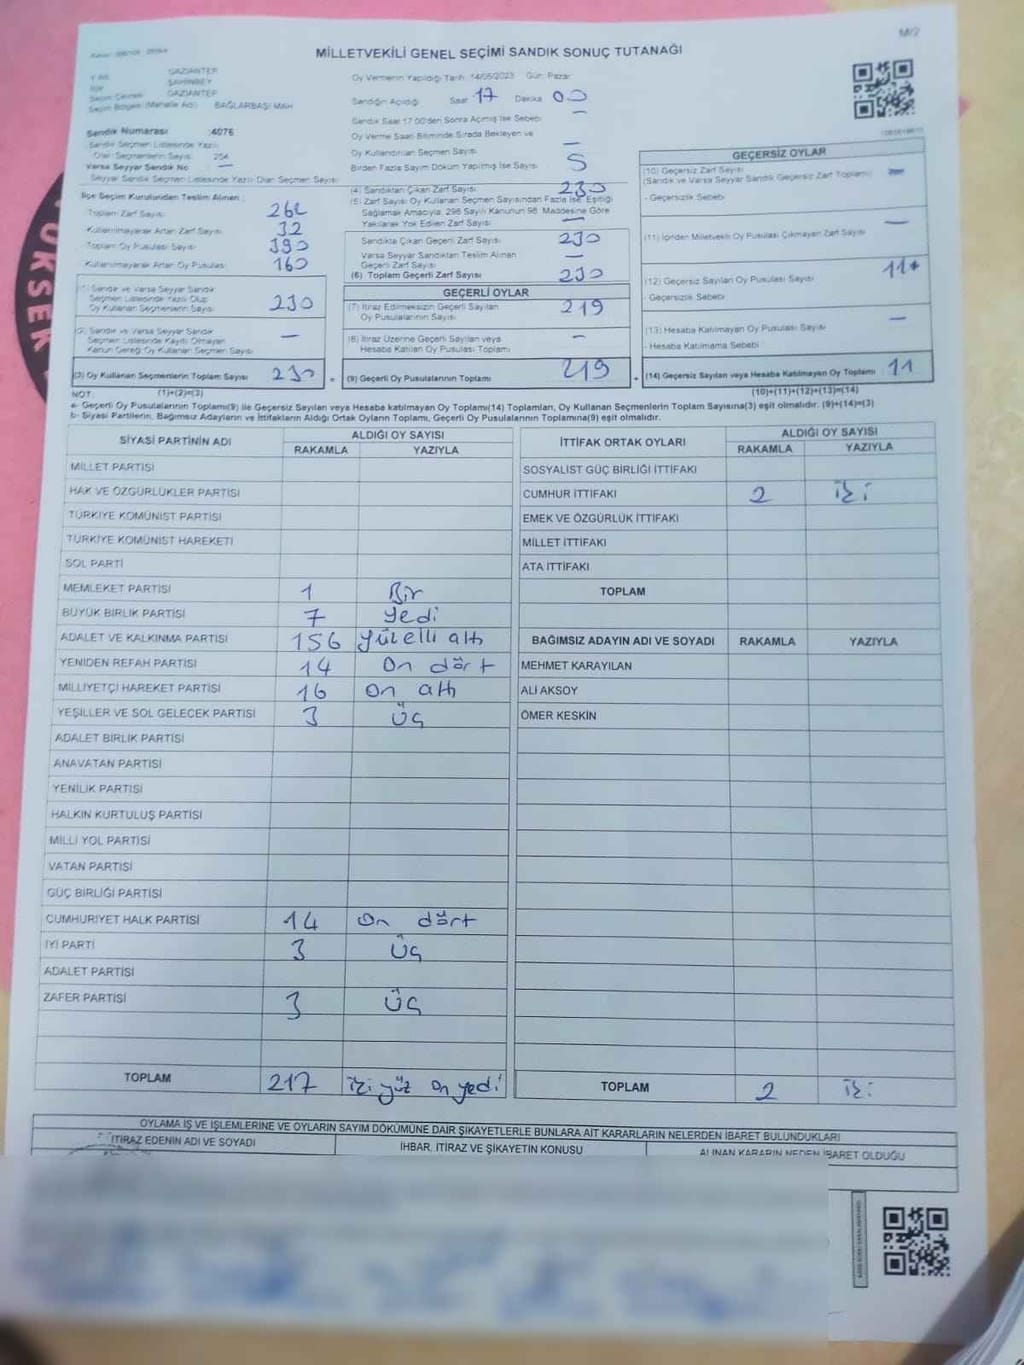 M/2
MİLLETVEKİLİ GENEL SEÇİMİ SANDIK SONUÇ TUTANAĞI
GAZİANTEP
ŞAHİNBEY
GAZİANTEP
Seçim Bölgesi (Mahalle Adı) BAĞLARBAŞI MAH
Sandık Numarası :4076
Sandık Seçmen Listesinde Yazılı
Olan Seçmenlerin Sayısı 254
Varsa Seyyar Sandık No —
Seyyar Sandık Seçmen Listesinde Yazılı Olan Seçmen Sayısı
İlçe Seçim Kurulundan Teslim Alınan :
Toplam Zarf Sayısı 262
Kullanılmayarak Artan Zarf Sayısı 32
Toplam Oy Pusulası Sayısı 390
Kullanılmayarak Artan Oy Pusulası 160
(1) Sandık ve Varsa Seyyar Sandık
Seçmen Listesinde Yazılı Olup
Oy Kullanan Seçmenlerin Sayısı 230
(2) Sandık ve Varsa Seyyar Sandık
Seçmen Listesinde Kayıtlı Olmayan
Kanun Gereği Oy Kullanan Seçmen Sayısı —
(3) Oy Kullanan Seçmenlerin Toplam Sayısı 230
Oy Vermenin Yapıldığı Tarih :14/05/2023 Gün: Pazar
Sandığın Açıldığı Saat 17 Dakika 00
Sandık Saat 17:00'den Sonra Açılmış İse Sebebi —
Oy Verme Saati Bitiminde Sırada Bekleyen ve
Oy Kullandırılan Seçmen Sayısı —
Birden Fazla Sayım Döküm Yapılmış İse Sayısı 5
(4) Sandıktan Çıkan Zarf Sayısı 230
(5) Zarf Sayısı Oy Kullanan Seçmen Sayısından Fazla İse, Eşitliği
Sağlamak Amacıyla, 298 Sayılı Kanunun 98. Maddesine Göre
Yakılarak Yok Edilen Zarf Sayısı —
Sandıkta Çıkan Geçerli Zarf Sayısı 230
Varsa Seyyar Sandıktan Teslim Alınan
Geçerli Zarf Sayısı —
(6) Toplam Geçerli Zarf Sayısı 230
GEÇERLİ OYLAR
(7) İtiraz Edilmeksizin Geçerli Sayılan
Oy Pusulalarının Sayısı 219
(8) İtiraz Üzerine Geçerli Sayılan veya
Hesaba Katılan Oy Pusulası Toplamı —
(9) Geçerli Oy Pusulalarının Toplamı 219
GEÇERSİZ OYLAR
(10) Geçersiz Zarf Sayısı
(Sandık ve Varsa Seyyar Sandık Geçersiz Zarf Toplamı) —
- Geçersizlik Sebebi
(11) İçinden Milletvekili Oy Pusulası Çıkmayan Zarf Sayısı —
(12) Geçersiz Sayılan Oy Pusulası Sayısı 11
- Geçersizlik Sebebi
(13) Hesaba Katılmayan Oy Pusulası Sayısı —
- Hesaba Katılmama Sebebi
(14) Geçersiz Sayılan veya Hesaba Katılmayan Oy Toplamı 11
NOT: (1)+(2)=(3) (10)+(11)+(12)+(13)=(14)
a- Geçerli Oy Pusulalarının Toplamı(9) ile Geçersiz Sayılan veya Hesaba katılmayan Oy Toplamı(14) Toplamları, Oy Kullanan Seçmenlerin Toplam Sayısına(3) eşit olmalıdır. (9)+(14)=(3)
b- Siyasi Partilerin, Bağımsız Adayların ve İttifakların Aldığı Ortak Oyların Toplamı, Geçerli Oy Pusulalarının Toplamına(9) eşit olmalıdır.
SİYASİ PARTİNİN ADI ALDIĞI OY SAYISI
RAKAMLA YAZIYLA
MİLLET PARTİSİ
HAK VE ÖZGÜRLÜKLER PARTİSİ
TÜRKİYE KOMÜNİST PARTİSİ
TÜRKİYE KOMÜNİST HAREKETİ
SOL PARTİ
MEMLEKET PARTİSİ 1 Bir
BÜYÜK BİRLİK PARTİSİ 7 yedi
ADALET VE KALKINMA PARTİSİ 156 yüz elli altı
YENİDEN REFAH PARTİSİ 14 On dört
MİLLİYETÇİ HAREKET PARTİSİ 16 On altı
YEŞİLLER VE SOL GELECEK PARTİSİ 3 üç
ADALET BİRLİK PARTİSİ
ANAVATAN PARTİSİ
YENİLİK PARTİSİ
HALKIN KURTULUŞ PARTİSİ
MİLLİ YOL PARTİSİ
VATAN PARTİSİ
GÜÇ BİRLİĞİ PARTİSİ
CUMHURİYET HALK PARTİSİ 14 On dört
İYİ PARTİ 3 üç
ADALET PARTİSİ
ZAFER PARTİSİ 3 üç
TOPLAM 217 iki yüz on yedi
İTTİFAK ORTAK OYLARI ALDIĞI OY SAYISI
RAKAMLA YAZIYLA
SOSYALİST GÜÇ BİRLİĞİ İTTİFAKI
CUMHUR İTTİFAKI 2 iki
EMEK VE ÖZGÜRLÜK İTTİFAKI
MİLLET İTTİFAKI
ATA İTTİFAKI
TOPLAM
BAĞIMSIZ ADAYIN ADI VE SOYADI RAKAMLA YAZIYLA
MEHMET KARAYILAN
ALİ AKSOY
ÖMER KESKİN
TOPLAM 2 iki
OYLAMA İŞ VE İŞLEMLERİNE VE OYLARIN SAYIM DÖKÜMÜNE DAİR ŞİKAYETLERLE BUNLARA AİT KARARLARIN NELERDEN İBARET BULUNDUKLARI
İTİRAZ EDENİN ADI VE SOYADI İHBAR, İTİRAZ VE ŞİKAYETİN KONUSU ALINAN KARARIN NEDEN İBARET OLDUĞU
YÜKSEK